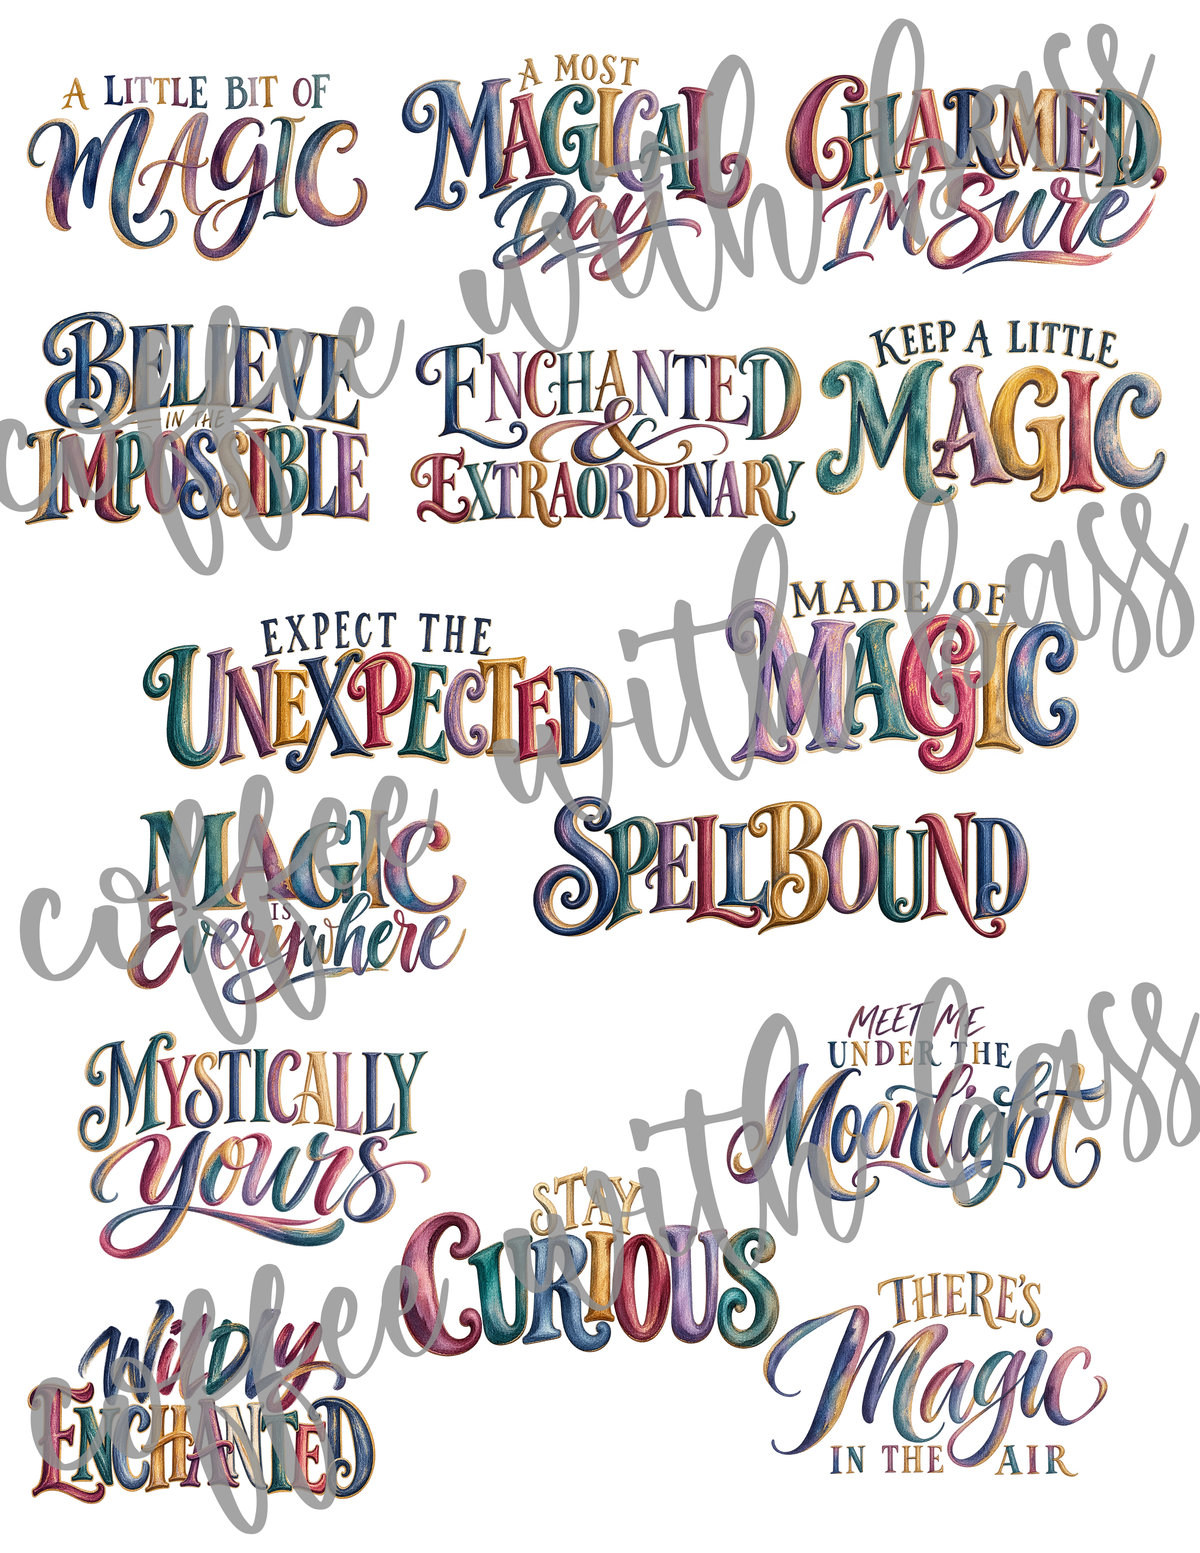 A LITTLE BIT OF
MAGIC
A MOST
MAGICAL
Day
CHARMED,
I'M Sure
BELIEVE
IN THE
IMPOSSIBLE
ENCHANTED
&
EXTRAORDINARY
KEEP A LITTLE
MAGIC
coffee with bass
EXPECT THE
UNEXPECTED
MADE OF
MAGIC
MAGIC
IS
Everywhere
SPELLBOUND
coffee with bass
MYSTICALLY
yours
MEET ME
UNDER THE
Moonlight
STAY
CURIOUS
WILDLY
ENCHANTED
THERE'S
Magic
IN THE AIR
coffee with bass